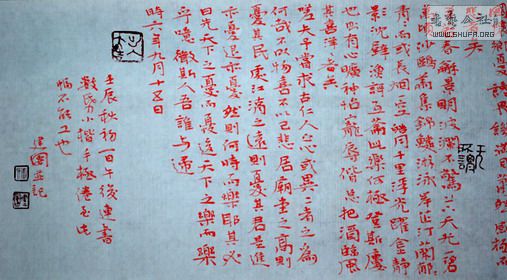 书法公社
WWW.SHUFA.ORG
憂讒畏譏滿目蕭然感極而
至春和景明波瀾不驚上下天光一碧
萬頃沙鷗翔集錦鱗游泳岸芷汀蘭郁
青而或長煙一空皓月千里浮光躍金靜
影沉璧漁歌互答此樂何極登斯樓
也則有心曠神怡寵辱偕忘把酒臨風
其喜洋洋者矣
嗟夫予嘗求古仁人之心或異二者之為
何哉不以物喜不以己悲居廟堂之高則
憂其民處江湖之遠則憂其君是進
亦憂退亦憂然則何時而樂耶其必
曰先天下之憂而憂後天下之樂而樂
乎噫微斯人吾誰與歸
時六年九月十五日
壬辰秋初一日午後連書
數小楷手極倦至此
不能工也
建國並記